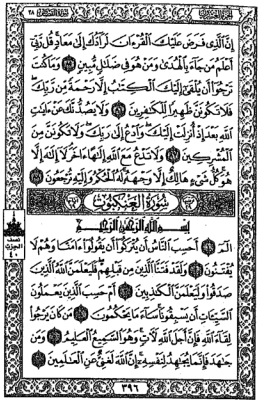 إِنَّ ٱلَّذِى فَرَضَ عَلَيْكَ ٱلْقُرْءَانَ لَرَآدُّكَ إِلَىٰ مَعَادٍ قُل رَّبِّىٓ
أَعْلَمُ مَن جَآءَ بِٱلْهُدَىٰ وَمَنْ هُوَ فِى ضَلَٰلٍ مُّبِينٍ ٨٥ وَمَا كُنتَ
تَرْجُوٓا۟ أَن يُلْقَىٰٓ إِلَيْكَ ٱلْكِتَٰبُ إِلَّا رَحْمَةً مِّن رَّبِّكَ
فَلَا تَكُونَنَّ ظَهِيرًا لِّلْكَٰفِرِينَ ٨٦ وَلَا يَصُدُّنَّكَ عَنْ ءَايَٰتِ
ٱللَّهِ بَعْدَ إِذْ أُنزِلَتْ إِلَيْكَ وَٱدْعُ إِلَىٰ رَبِّكَ وَلَا تَكُونَنَّ مِنَ
ٱلْمُشْرِكِينَ ٨٧ وَلَا تَدْعُ مَعَ ٱللَّهِ إِلَٰهًا ءَاخَرَ لَآ إِلَٰهَ إِلَّا
هُوَ كُلُّ شَىْءٍ هَالِكٌ إِلَّا وَجْهَهُۥ لَهُ ٱلْحُكْمُ وَإِلَيْهِ تُرْجَعُونَ ٨٨
سُورَةُ الْعَنْكَبُوتِ
بِسْمِ ٱللَّهِ ٱلرَّحْمَٰنِ ٱلرَّحِيمِ
الٓمٓ ١ أَحَسِبَ ٱلنَّاسُ أَن يُتْرَكُوٓا۟ أَن يَقُولُوٓا۟ ءَامَنَّا وَهُمْ لَا
يُفْتَنُونَ ٢ وَلَقَدْ فَتَنَّا ٱلَّذِينَ مِن قَبْلِهِمْ فَلَيَعْلَمَنَّ ٱللَّهُ ٱلَّذِينَ
صَدَقُوا۟ وَلَيَعْلَمَنَّ ٱلْكَٰذِبِينَ ٣ أَمْ حَسِبَ ٱلَّذِينَ يَعْمَلُونَ
ٱلسَّيِّـَٔاتِ أَن يَسْبِقُونَا سَآءَ مَا يَحْكُمُونَ ٤ مَن كَانَ يَرْجُوا۟
لِقَآءَ ٱللَّهِ فَإِنَّ أَجَلَ ٱللَّهِ لَـَٔاتٍ وَهُوَ ٱلسَّمِيعُ ٱلْعَلِيمُ ٥ وَمَن
جَٰهَدَ فَإِنَّمَا يُجَٰهِدُ لِنَفْسِهِۦٓ إِنَّ ٱللَّهَ لَغَنِىٌّ عَنِ ٱلْعَٰلَمِينَ ٦
نصف
الحزب
٤٠
٣٩٦